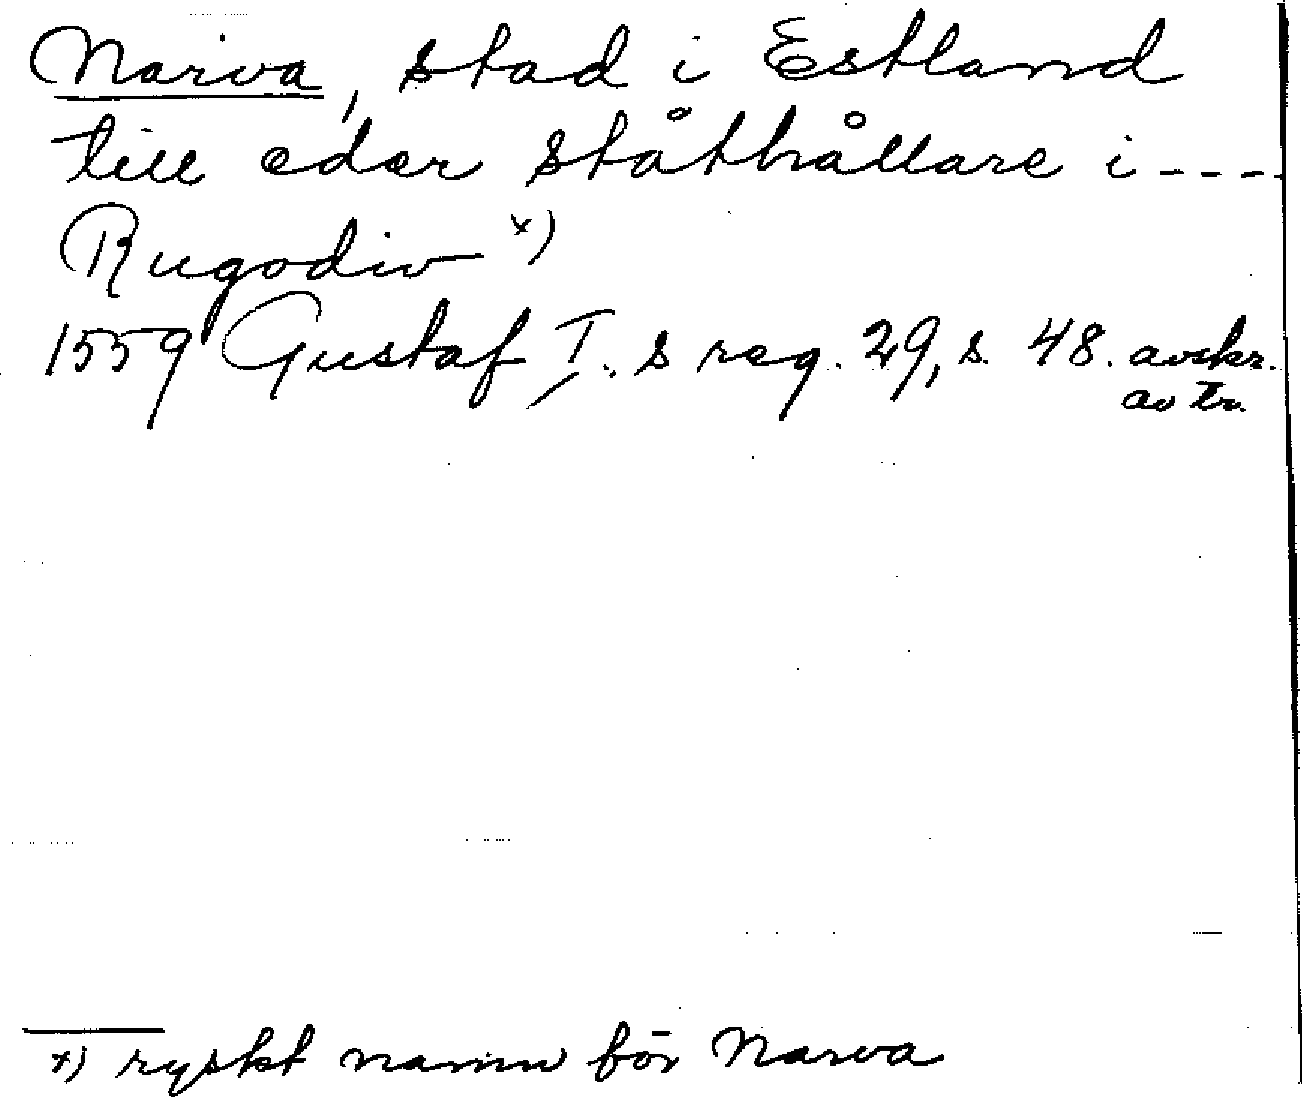 Narva, stad i Estland
till eder ståthållare i ----
Rugodiv x)
1559 Gustaf I. s reg. 29, s. 48. avskr.
av tr.
x) ryskt namn för Narva